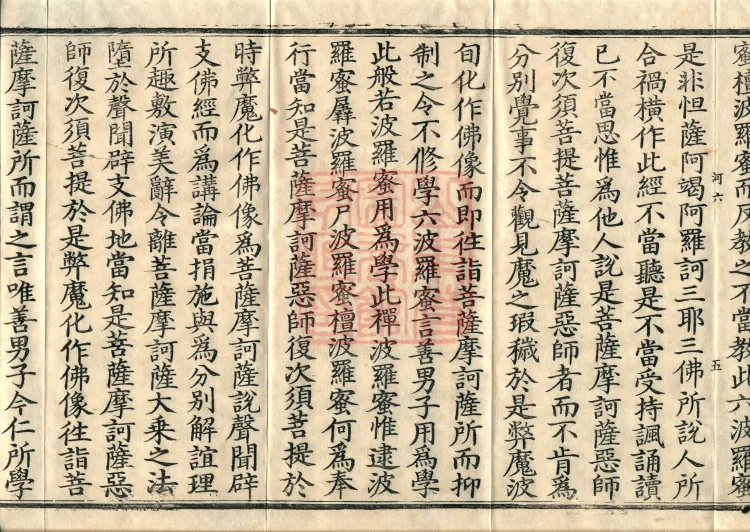 蜜檀波羅蜜而反教之不當教此六波羅蜜
是非怛薩阿竭阿羅訶三耶三佛所說人所
合禍橫作此經不當聽是不當受持諷誦讀
已不當思惟為他人說是菩薩摩訶薩惡師
復次須菩提菩薩摩訶薩惡師者而不肯為
分別覺事不令觀見魔之瑕穢於是弊魔波
河六
五
旬化作佛像而即徃詣菩薩摩訶薩所而抑
制之令不脩學六波羅蜜言善男子用為學
此般若波羅蜜用為學此禪波羅蜜惟逮波
羅蜜羼波羅蜜尸波羅蜜檀波羅蜜何為奉
行當知是菩薩摩訶薩惡師復次須菩提於
時弊魔化作佛像為菩薩摩訶薩說聲聞辟
支佛經而為講論當捐施與為分別解誼理
所趣敷演美辭令離菩薩摩訶薩大乗之法
墮於聲聞辟支佛地當知是菩薩摩訶薩惡
師復次須菩提於是弊魔化作佛像徃詣菩
薩摩訶薩所而謂之言唯善男子今仁所學